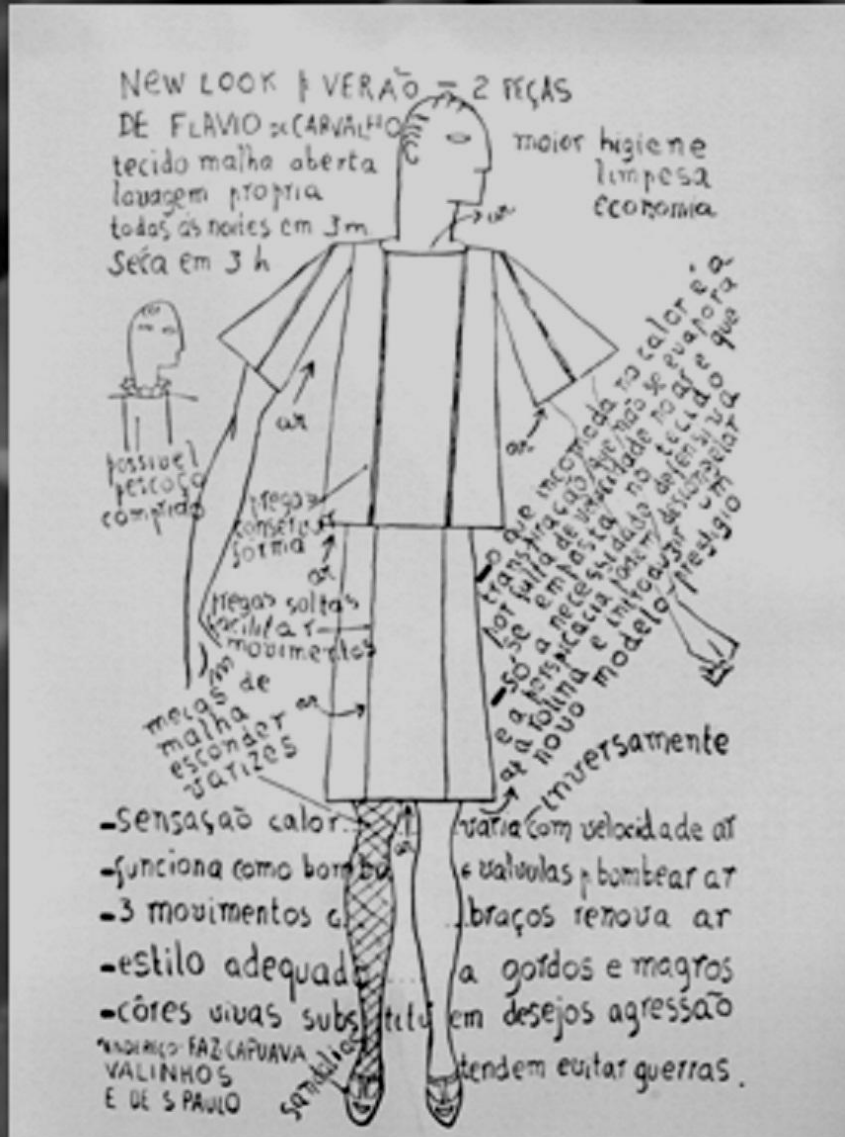 NEW LOOK p VERÃO = 2 PEÇAS
DE FLAVIO DE CARVALHO
tecido malha aberta
lavagem propria
todas as noites em 3m
seca em 3 h
maior higiene
limpesa
economia
ar
possivel
pescoço
comprido
ar
ar
pregas
conserva
forma
ar
pregas soltas
facilitar
movimentos
ar
meias de
malha
esconder
varizes
-o que incomoda no calor é a
transpiração que não se evapora
por falta de velocidade no ar e que
se empasta no tecido
-só a necessidade defensiva
e a perspicacia podem descongelar
a rotina e introduzir um
novo modelo prestigio
ar
inversamente
-sensação calor varia com velocidade ar
-funciona como bomba e valvulas p bombear ar
-3 movimentos braços renova ar
-estilo adequado a gordos e magros
-côres vivas substituem desejos agressão
tendem evitar guerras.
ENDEREÇO FAZ CAPUAVA
VALINHOS
E DE S PAULO
sandalia